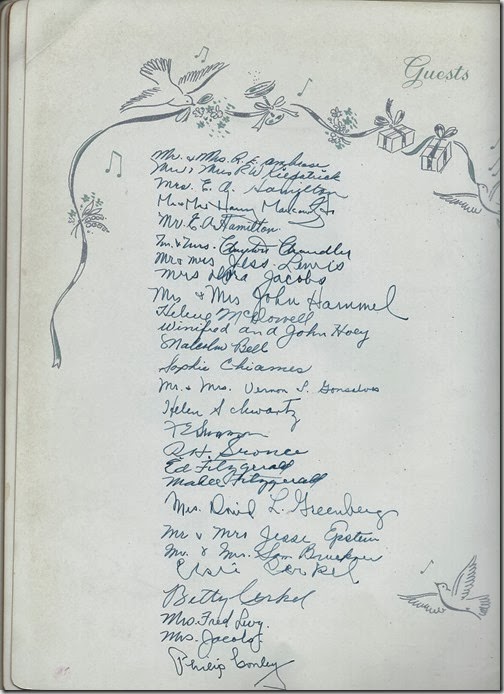 Guests
Mr. & Mrs. R. E. Ambrose
Mr & Mrs R W Kilpatrick
Mrs. E. A. Hamilton
Mr & Mrs Harry
Mr. E. A. Hamilton
Mr. & Mrs. Chandler
Mr & Mrs Jess. Lewis
Mrs Jacobs
Mr & Mrs John Hammel
Helene McDowell
Winifred and John Hoey
Malcolm Bell
Sophie Chiames
Mr. & Mrs. Vernon S. Gonsalves
Helen Schwartz
Ed Fitzgerald
Fitzgerald
Mrs. David L. Greenberg
Mr & Mrs Jesse Epstein
Mr. & Mrs. Sam Bruckner
Elsie Cerkel
Betty Cerkel
Mrs. Fred Levy.
Mrs. Jacobs
Philip Conley